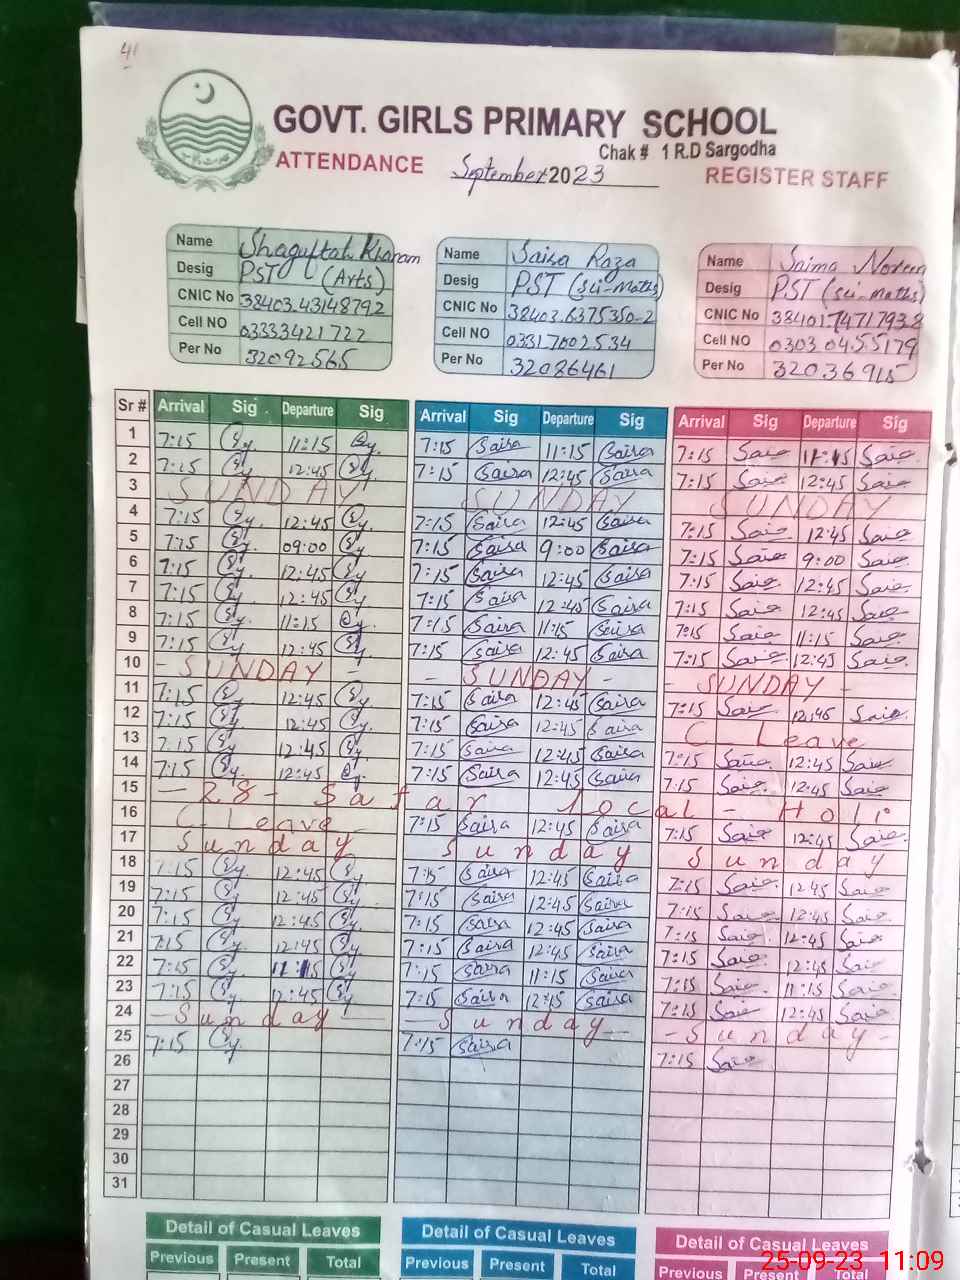 41
GOVT. GIRLS PRIMARY SCHOOL
Chak # 1 R.D Sargodha
ATTENDANCE September 2023 REGISTER STAFF
Name Shaguftah Khanam Name Saisa Raza Name Saima Noreen
Desig PST (Arts) Desig PST (sci-maths) Desig PST (sci-maths)
CNIC No 38403.43148792 CNIC No 38403.6375350-2 CNIC No 3840174717938
Cell NO 03333421722 Cell NO 03317002534 Cell NO 03030455179
Per No 32092565 Per No 32086461 Per No 32036915
Sr # Arrival Sig Departure Sig Arrival Sig Departure Sig Arrival Sig Departure Sig
1 7:15 Sy. 11:15 Sy. 7:15 Saisa 11:15 Saisa 7:15 Saie 11:15 Saie
2 7:15 Sy. 12:45 Sy. 7:15 Saisa 12:45 Saisa 7:15 Saie 12:45 Saie
3 SUNDAY SUNDAY SUNDAY
4 7:15 Sy. 12:45 Sy. 7:15 Saisa 12:45 Saisa 7:15 Saie 12:45 Saie
5 7:15 Sy. 09:00 Sy. 7:15 Saisa 9:00 Saisa 7:15 Saie 9:00 Saie
6 7:15 Sy. 12:45 Sy. 7:15 Saisa 12:45 Saisa 7:15 Saie 12:45 Saie
7 7:15 Sy. 12:45 Sy. 7:15 Saisa 12:45 Saisa 7:15 Saie 12:45 Saie
8 7:15 Sy. 11:15 Sy. 7:15 Saisa 11:15 Saisa 7:15 Saie 11:15 Saie
9 7:15 Sy. 12:45 Sy. 7:15 Saisa 12:45 Saisa 7:15 Saie 12:45 Saie
10 - SUNDAY - - SUNDAY - - SUNDAY -
11 7:15 Sy. 12:45 Sy. 7:15 Saisa 12:45 Saisa 7:15 Saie 12:45 Saie
12 7:15 Sy. 12:45 Sy. 7:15 Saisa 12:45 Saisa C Leave
13 7:15 Sy. 12:45 Sy. 7:15 Saisa 12:45 Saisa 7:15 Saie 12:45 Saie
14 7:15 Sy. 12:45 Sy. 7:15 Saisa 12:45 Saisa 7:15 Saie 12:45 Saie
15 - 28 - Safar Local - Holi
16 C. Leave - 7:15 Saisa 12:45 Saisa 7:15 Saie 12:45 Saie
17 Sunday Sunday Sunday
18 7:15 Sy. 12:45 Sy. 7:15 Saisa 12:45 Saisa 7:15 Saie 12:45 Saie
19 7:15 Sy. 12:45 Sy. 7:15 Saisa 12:45 Saisa 7:15 Saie 12:45 Saie
20 7:15 Sy. 12:45 Sy. 7:15 Saisa 12:45 Saisa 7:15 Saie 12:45 Saie
21 7:15 Sy. 12:45 Sy. 7:15 Saisa 12:45 Saisa 7:15 Saie 12:45 Saie
22 7:15 Sy. 11:15 Sy. 7:15 Saisa 11:15 Saisa 7:15 Saie 11:15 Saie
23 7:15 Sy. 12:45 Sy. 7:15 Saisa 12:45 Saisa 7:15 Saie 12:45 Saie
24 - Sunday - - Sunday - - Sunday -
25 7:15 Sy. 7:15 Saisa 7:15 Saie
26
27
28
29
30
31
Detail of Casual Leaves Detail of Casual Leaves Detail of Casual Leaves
Previous Present Total Previous Present Total Previous Present Total
25-09-23 11:09